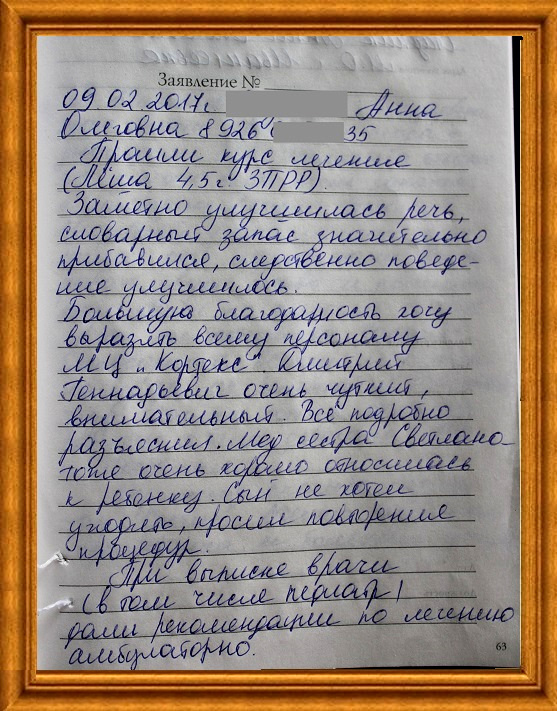 Заявление №
09.02.2017г. Анна
Олеговна 8926 35
Прошли курс лечения
(Миша 4,5г. ЗПРР).
Заметно улучшилась речь,
словарный запас значительно
прибавился, следственно поведе-
ние улучшилось.
Большую благодарность хочу
выразить всему персоналу
МЦ "Кортекс". Дмитрий
Геннадьевич очень чуткий,
внимательный. Всё подробно
разъяснил. Мед сестра Светлана
тоже очень хорошо относилась
к ребенку. Сын не хотел
уходить, просил повторения
процедур.
При выписке врачи
(в том числе педиатр)
дали рекомендации по лечению
амбулаторно.
63